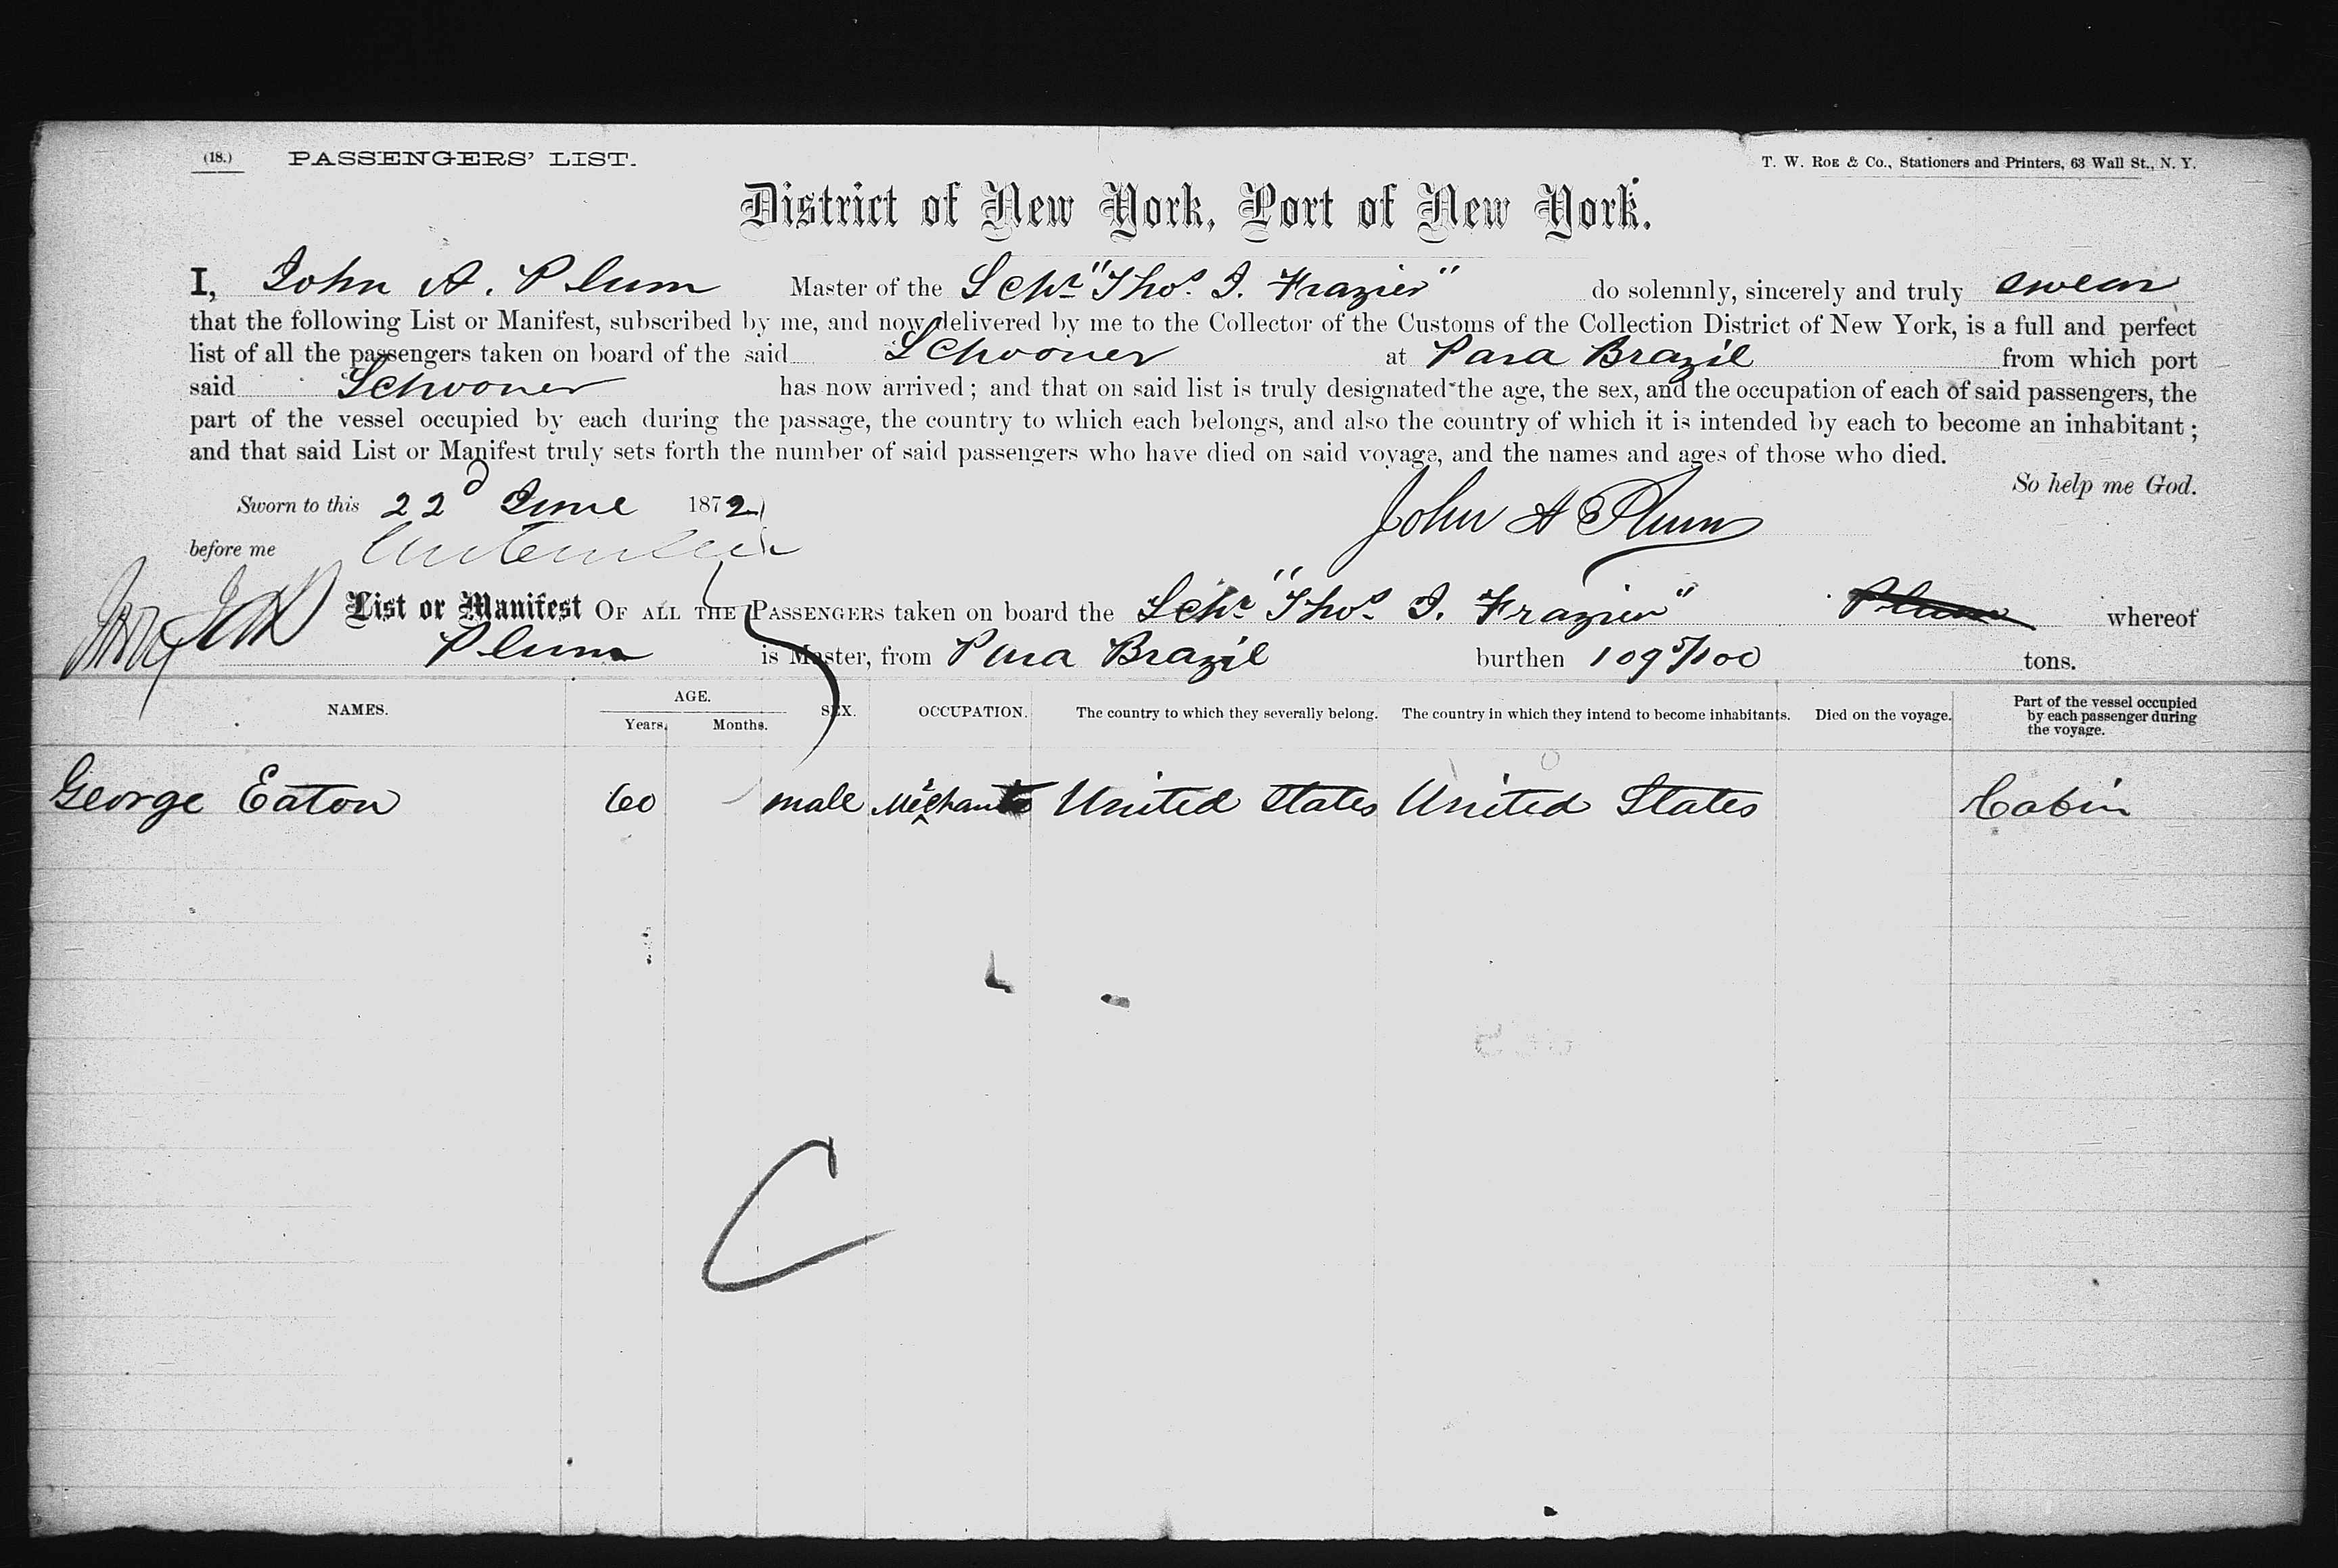 (18.) PASSENGERS' LIST. T. W. ROE & Co., Stationers and Printers, 63 Wall St., N. Y.
District of New York, Port of New York.
I, John A. Plum Master of the Schr "Thos. J. Frazier" do solemnly, sincerely and truly swear
that the following List or Manifest, subscribed by me, and now delivered by me to the Collector of the Customs of the Collection District of New York, is a full and perfect
list of all the passengers taken on board of the said Schooner at Para Brazil from which port
said Schooner has now arrived; and that on said list is truly designated the age, the sex, and the occupation of each of said passengers, the
part of the vessel occupied by each during the passage, the country to which each belongs, and also the country of which it is intended by each to become an inhabitant;
and that said List or Manifest truly sets forth the number of said passengers who have died on said voyage, and the names and ages of those who died.
So help me God.
Sworn to this 22d June 1872
John A Plum
before me
List or Manifest OF ALL THE PASSENGERS taken on board the Schr "Thos. J. Frazier" Plum whereof
Plum is Master, from Para Brazil burthen 109 5/100 tons.
NAMES. AGE. Years. Months. SEX. OCCUPATION. The country to which they severally belong. The country in which they intend to become inhabitants. Died on the voyage. Part of the vessel occupied by each passenger during the voyage.
George Eaton 60 male Merchant United States United States Cabin
C